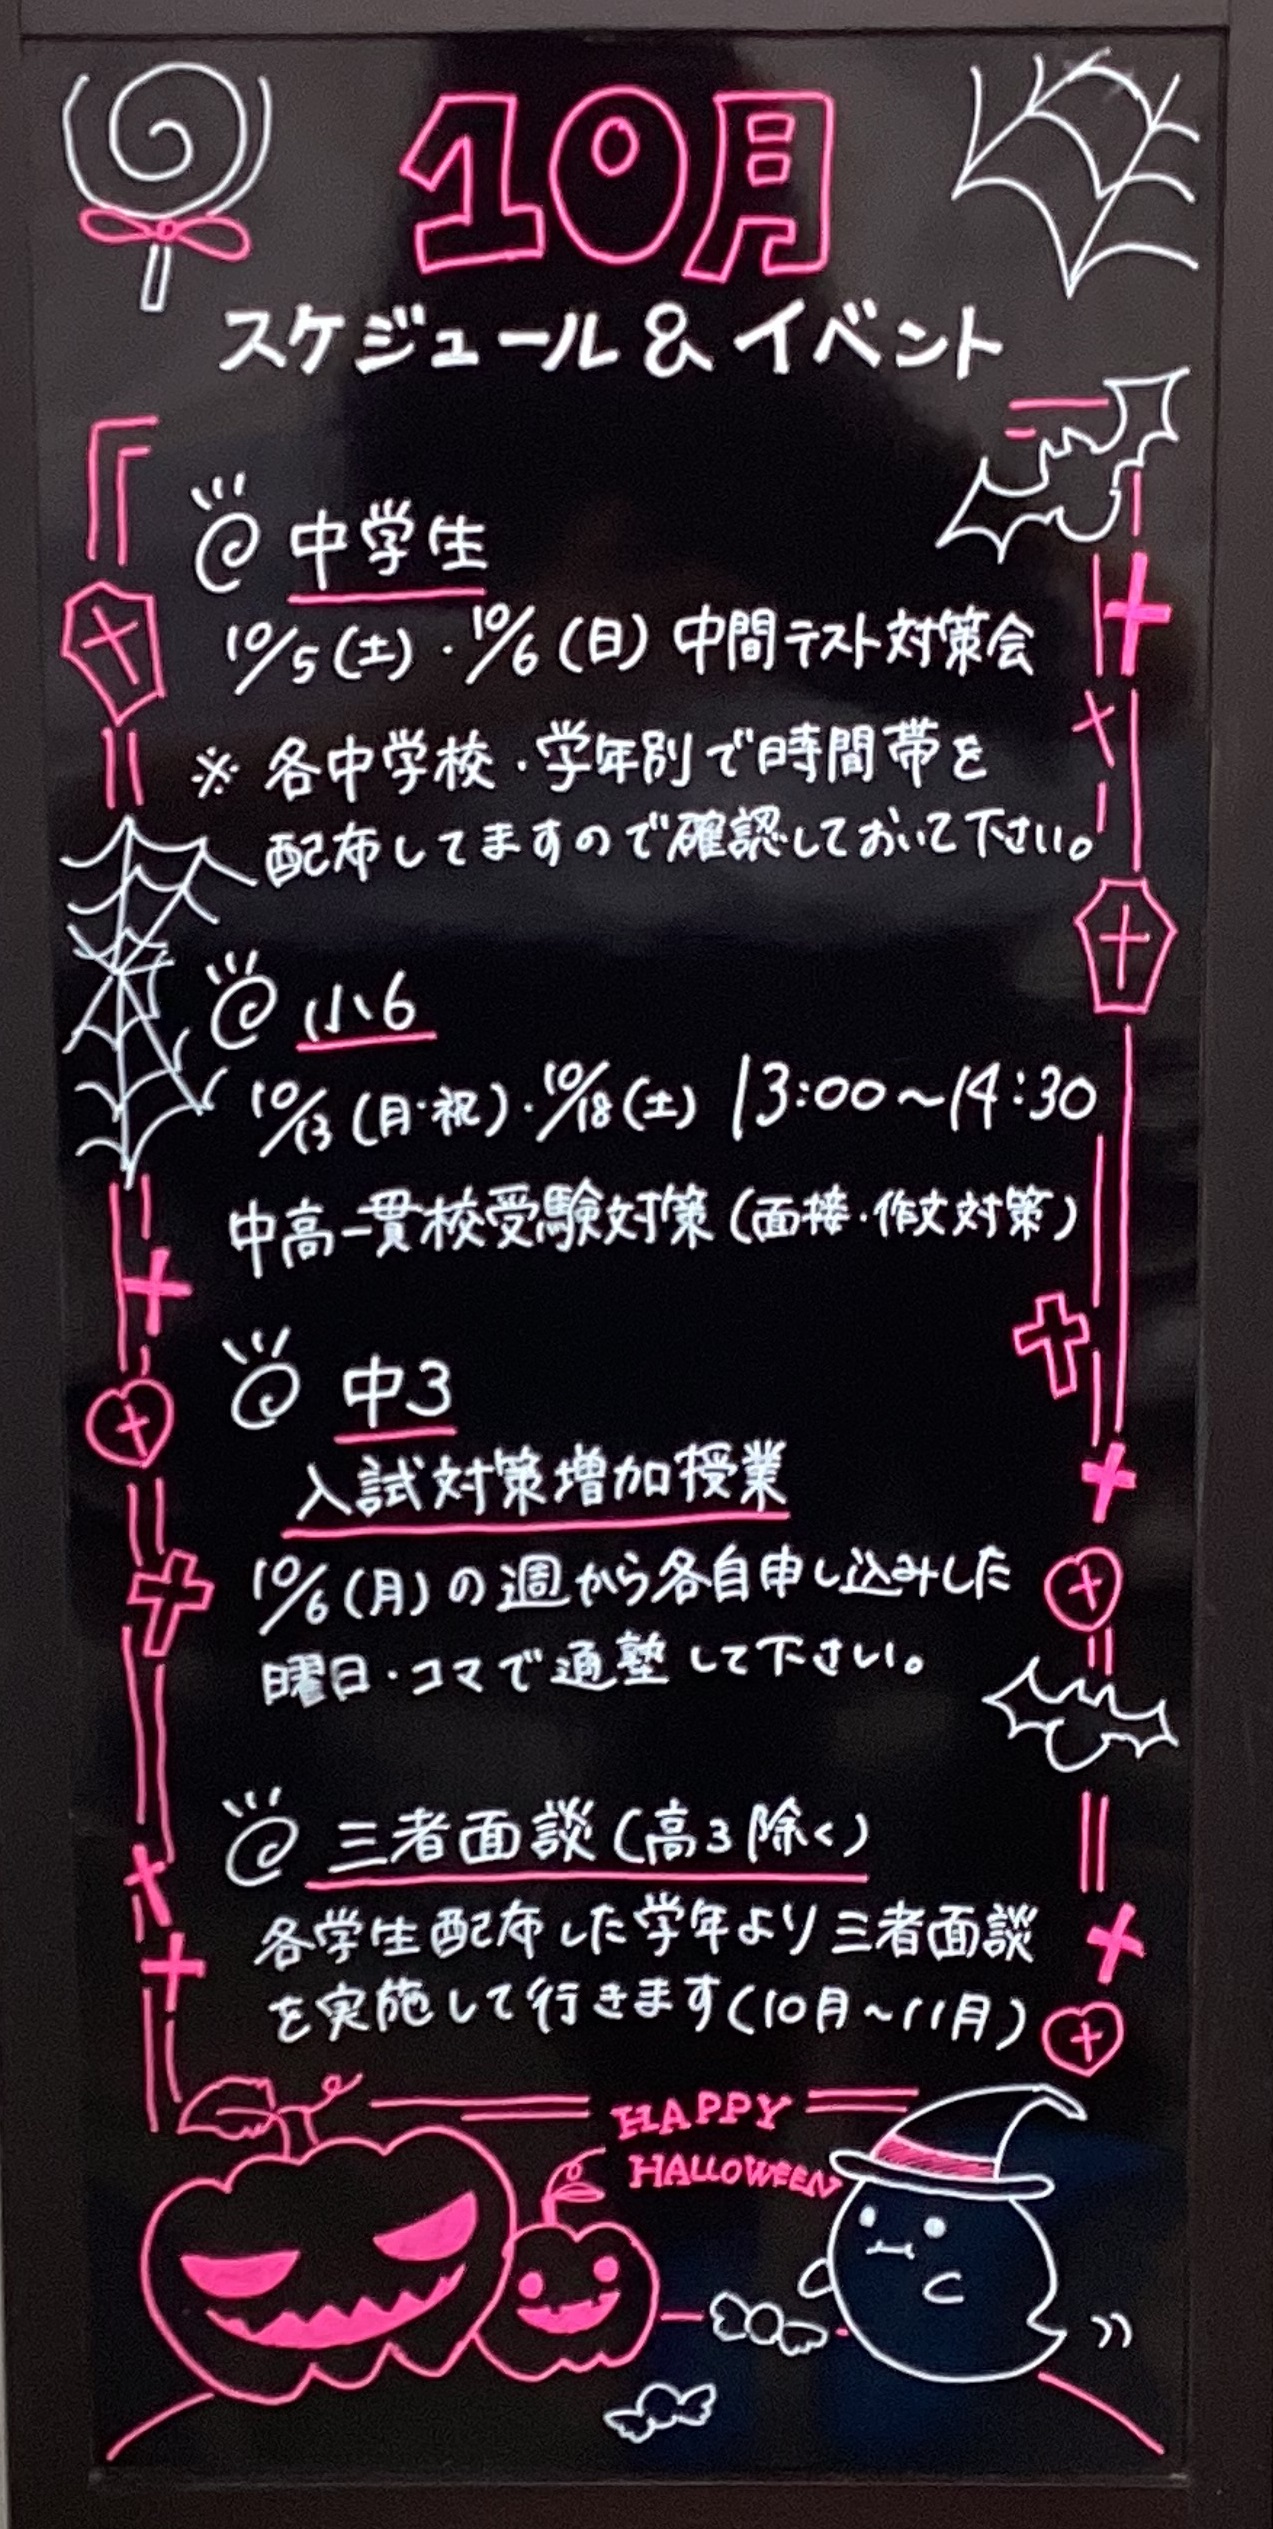 10月
スケジュール&イベント
中学生
10/5(土)・10/6(日) 中間テスト対策会
※ 各中学校・学年別で時間帯を
配布してますので確認しておいて下さい。
小6
10/13(月・祝)・10/18(土) 13:00~14:30
中高一貫校受験対策(面接・作文対策)
中3
入試対策増加授業
10/6(月)の週から各自申し込みした
曜日・コマで通塾して下さい。
三者面談(高3除く)
各学生配布した学年より三者面談
を実施して行きます(10月~11月)
HAPPY
HALLOWEEN